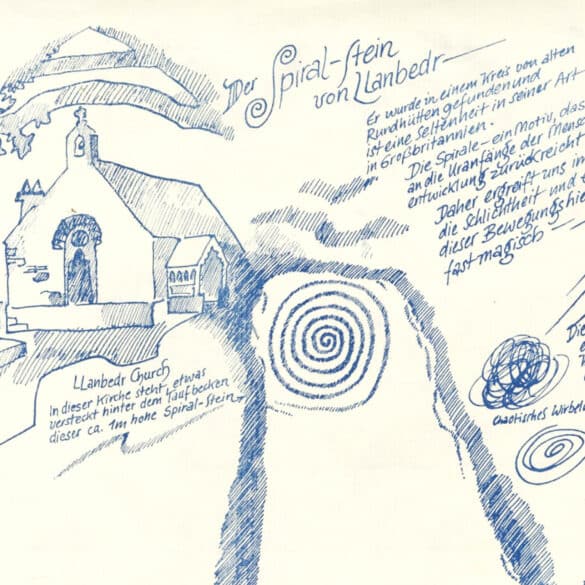 Der Spiral-Stein
von Llanbedr
Er wurde in einem Kreis von alten
Rundhütten gefunden und
ist eine Seltenheit in seiner Art
in Großbritannien.
Die Spirale - ein Motiv, das
an die Uranfänge der Mensch
entwicklung zurückreicht
Daher ergreift uns
die Schlichtheit und
dieser Bewegungs
fast magisch
LLanbedr Church
In dieser Kirche steht, etwas
versteckt hinter dem Taufbecken
dieser ca. 1m hohe Spiral-Stein
Die
chaotisches Wirbel